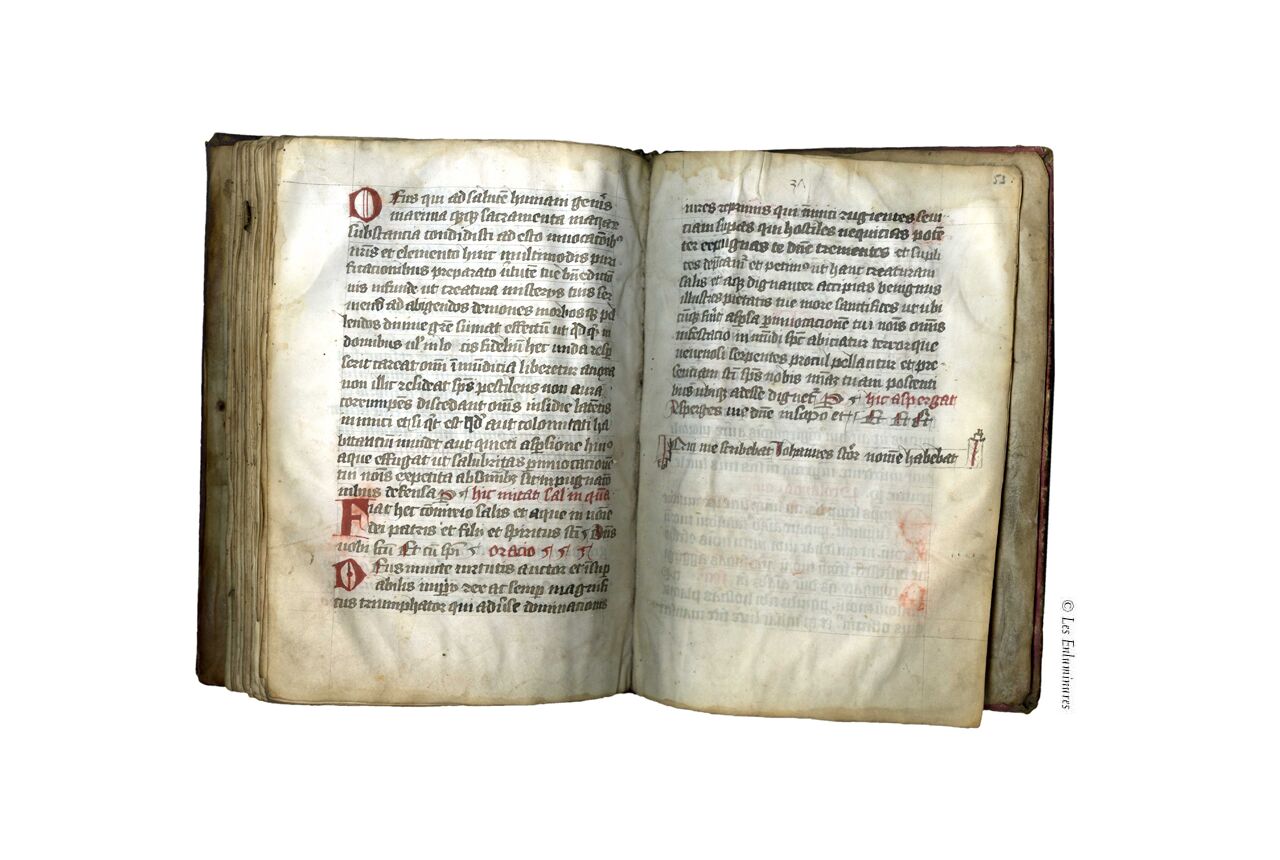 Deus qui ad salutē humani genīs
maxima q̄q; sacramenta in aqarꝝ
substancia condidisti ad esto invocacōib⁹
nr̄is et elemento huic multimodis puri
ficacionibus preparato v̄tutē tue bn̄edictōn̄
nis infunde ut creatura misterijs tuis ser
uiens ad abigendos demones morbos q; pel
lendos diuine gr̄e sumat effectū ut q̄d q̄ in
domibus ul̓ in lo cis fidelium hec unda resp̄
serit careat om̄i īmūdicia liberetur a noxa
non illic resideat sp̄s pestilens non aura
corrumpens discedant om̄s insidie latētis
inimici et si q̄t est q̄d aut incolomitati ha
bitanciū inuidet aut quieti asp̄sione hui⁹
aque effugiat ut salubritas p inuocacionē
tui nōis expetita ab om̄ibꝫ sit inpugnacō
nibus defensa P hic mittat sal in aquā
Fiat hec cōmixcio salis et aque in noīe
dei patris et filii et spiritus sc̄ti Dn̄us
uobiscū Et cū sp̄u oracio
Deus inuicte uirtutis auctor et īsup
abilis imp̄ij rex ac semp̄ magnifi
cus triumphator qui adūse dominacionis
38
53
uires reprimis qui inimici rugientes seui
ciam supas qui hostiles nequicias potē
ter expugnas te dn̄e trementes et supli
ces dep̄camur et petim⁹ ut hanc creaturam
salis et aq̄ dignanter accipias benignus
illustres pietatis tue more santifices ut ubi
cūq; fūit asp̄sa p inuocacionē tui nōis om̄is
infestacio inmūdi sp̄c abiciatur terrorque
uenenosi serpentes procul pellantur et pre
senciam sc̄ti sp̄s nobis mīaꝫ tuam poscenti
bus ubiq; adesse dignet̄ P hic aspergat
Asperges me dn̄e insopo et
Qui me scribebat Johannes nomē habebat
© Les Enluminures